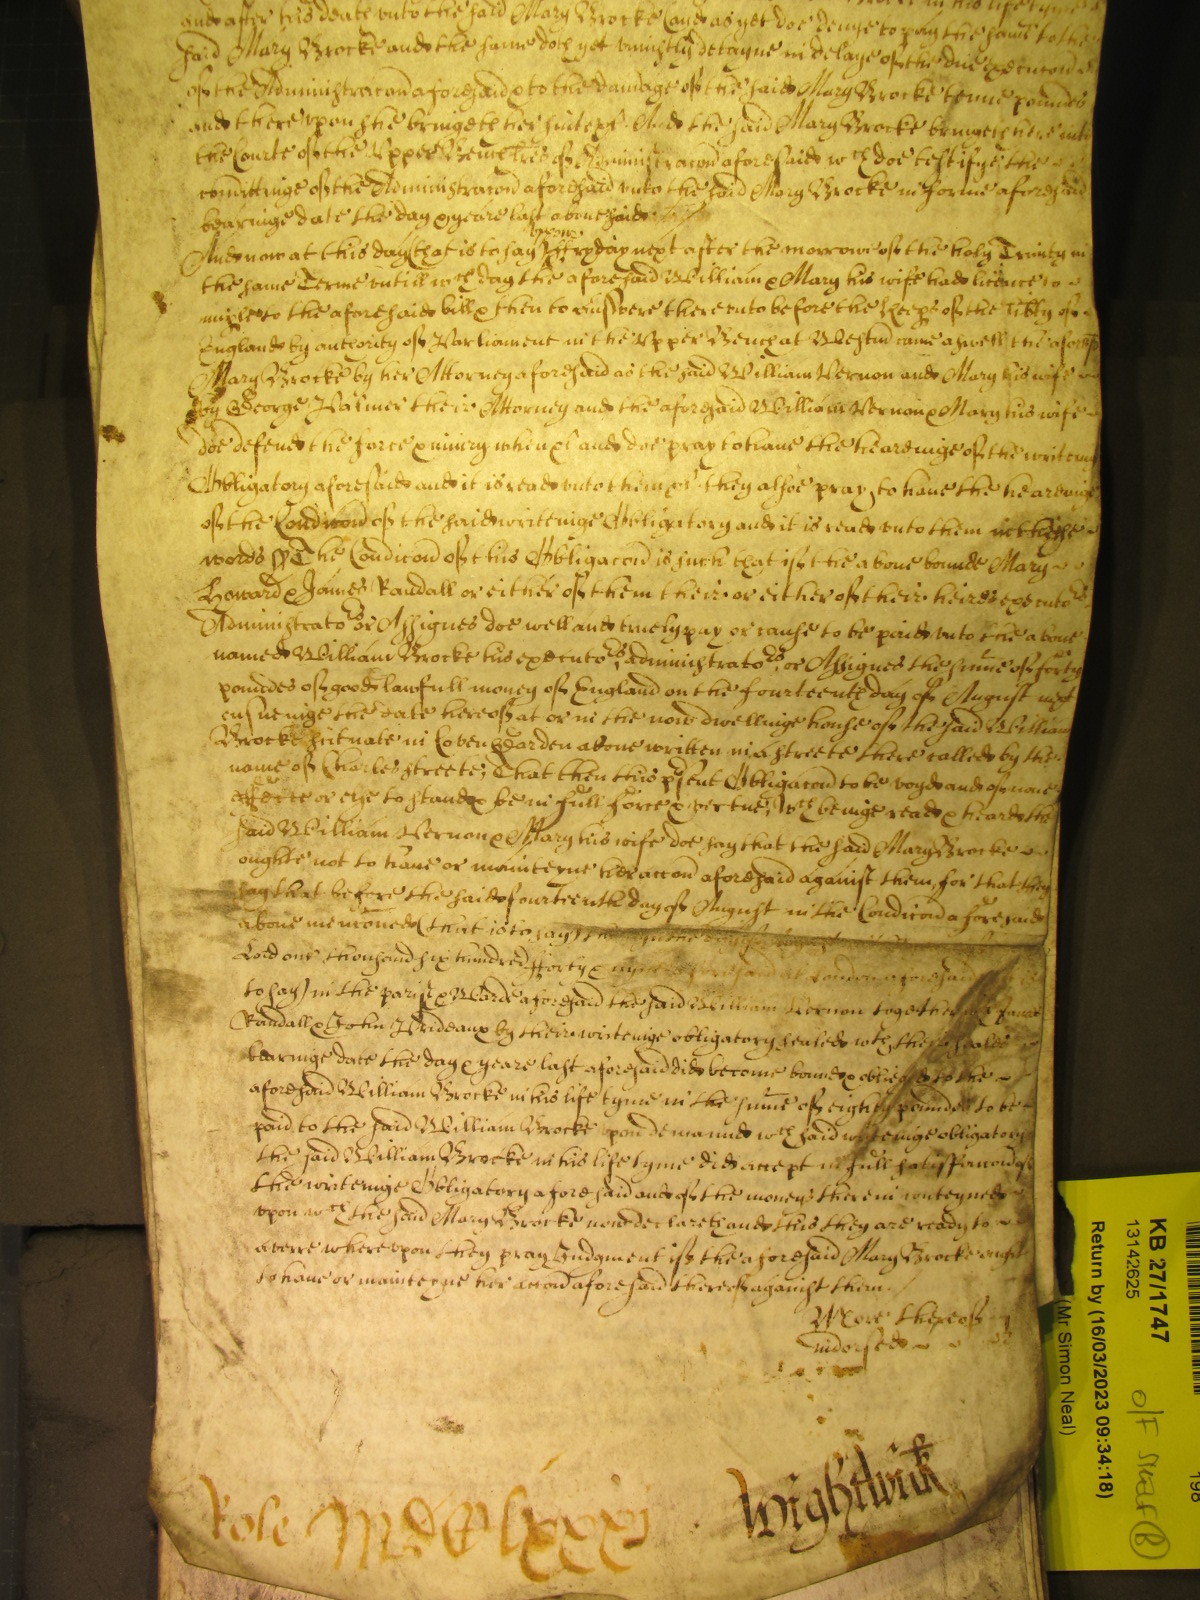 and after his death unto the said Mary Brocke (and as yet doe denye to pay the same to the
said Mary Brocke and the same doth yet uniustly detayne in delaye of the due execucon
of the Administracon aforesaid & to the damage of the said Mary Brocke tenne pounds
and thereupon she bringeth her suite &c. And the said Mary Brocke bringeth here into
the Courte of the Upper Bench lres of Administracon aforesaid wch doe testifye the
comittinge of the Administracon aforesaid unto the said Mary Brocke in forme aforesaid
bearinge date the day & yeare last abovesaid
And now at this day that is to say upon ffryday next after the morrowe of the holy Trinity in
the same Terme untill wch day the aforesaid William & Mary his wife had licence to
imparle to the aforesaid bill & then to answere thereunto before the keeps of the libty of
England by authority of Parliament in the Upper Bench at Westm came aswell the aforesd
Mary Brocke by her Attorney aforesaid as the said William Vernon and Mary his wife
by George Palmer their Attorney and the aforesaid William Vernon & Mary his wife
doe defend the force & iniury when &c and doe pray to have the hearinge of the writeing
Obligatory aforesaid and it is read unto them &c. they alsoe pray to have the hearinge
of the Condicon of the said writeinge Obligatory and it is read unto them in these
words ss The Condicon of this Obligacon is such that if the above bounde Mary
Howard & James Randall or either of them their or either of their heires executors
Administrators or Assignes doe well and truely pay or cause to be paid unto the above
named William Brocke his executors administrators or Assignes the sume of forty
poundes of good & lawfull money of England on the fourteenth day of August next
ensueinge the date hereof at or in the now dwellinge house of the said William
Brocke scituate in Coven Garden above written in a streete there called by the
name of Charles streete; That then this psent Obligacon to be voyd and of none
effecte or else to stand & be in full force & vertue; Wch beinge read & heard the
said William Vernon & Mary his wife doe say that the said Mary Brocke
oughte not to have or mainteyne her accon aforesaid against them, for that they
say that before the said fourteenth day of August in the Condicon aforesaid
above menconed (that is to say)
Lord one thousand six hundred fforty & London aforesaid
to say) in the parish & Warde aforesaid the said William Vernon together James
Randall & John Prideaux by their writeinge obligatory sealed wth their seales
bearinge date the day & yeare last aforesaid did become bound & obliged to the
aforesaid William Brocke in his life tyme in the sume of eighty pounds to be
paid to the said William Brocke upon demaund wch said writeinge obligatory
the said William Brocke in his life tyme did accept in full satisfaccon of
the writeinge Obligatory aforesaid and of the moneys therein conteyned
upon wch the said Mary Brocke now declareth and this they are ready to
averre whereupon they pray Judgment if the aforesaid Mary Brocke ought
to have or mainteyne her accon aforesaid thereof against them.
More thereof
indorsed
Role MDClxxxi Wightwick
KB 27/1747
13142625
Return by (16/03/2023 09:34:18)
(Mr Simon Neal)
O/F
198